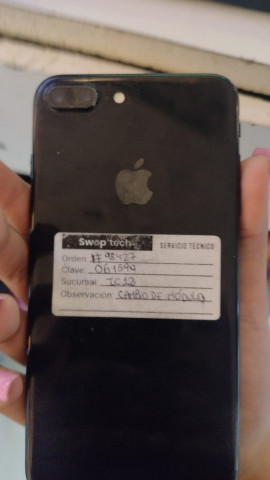 Swop'tech SERVICIO TECNICO
Orden #98427
Clave 061594
Sucursal TC12
Observacion CAMBIO DE MÓDULO